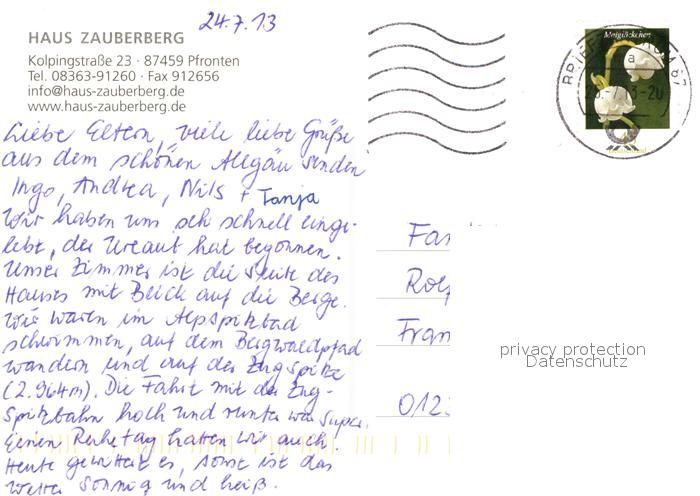 24.7.13
HAUS ZAUBERBERG
Kolpingstraße 23 · 87459 Pfronten
Tel. 08363-91260 · Fax 912656
info@haus-zauberberg.de
www.haus-zauberberg.de
Liebe Eltern, viele liebe Grüße
aus dem schönen Allgäu senden
Ingo, Andrea, Nils + Tanja
Wir haben uns sehr schnell einge-
lebt, der Urlaub hat begonnen.
Unser Zimmer ist die Seite des
Hauses mit Blick auf die Berge.
Wir waren im Alpspitzbad
schwimmen, auf dem Bergwaldpfad
wandern und auf der Zugspitze
(2.964m). Die Fahrt mit der Zug-
spitzbahn hoch und runter war super.
Einen Ruhetag hatten wir auch.
Heute gewittert es, sonst ist das
Wetter sonnig und heiß.
Maiglöckchen
BRIEFZENTRUM 87
a
-7.13-20
Fa
Rol
Fran
012
privacy protection
Datenschutz